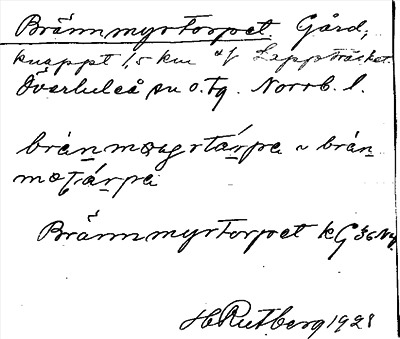 Brännmyrtorpet Gård,
knappt 1,5 km af Lappträsket.
Överluleå sn o. tg. Norrb. l.
brànmœyrtárpe ~ bràn
mœţárpe
Brännmyrtorpet kG 36 Ny.
H Rutberg 1928